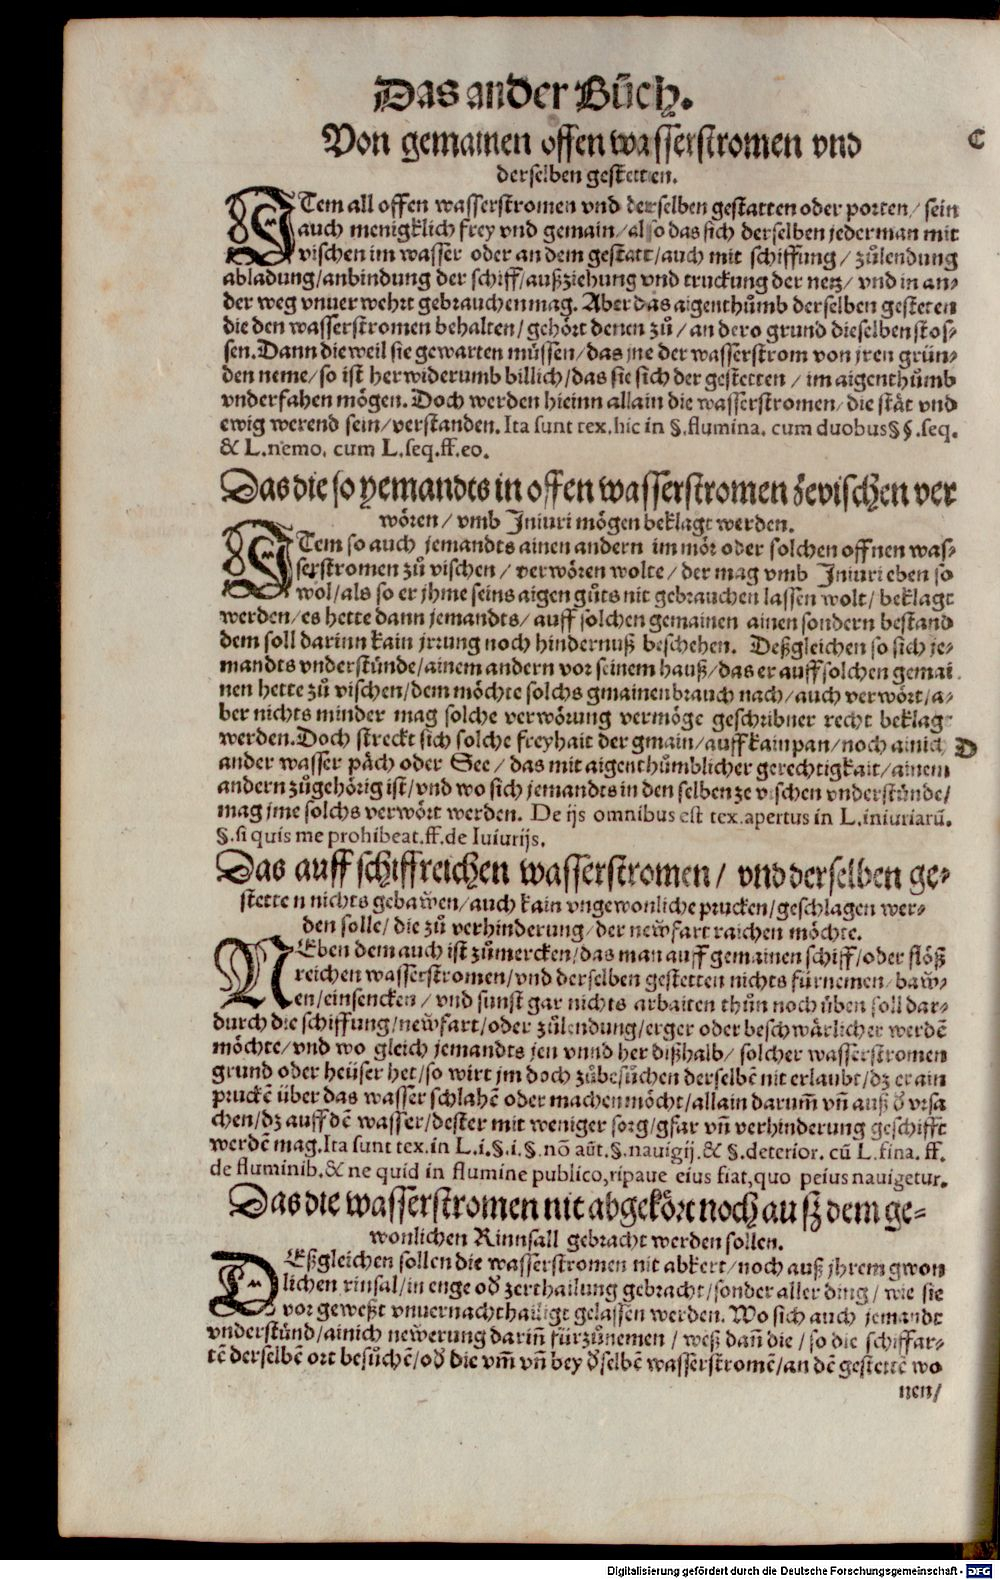 Das ander Bůch.
Von gemainen offen wasserstromen vnd
C
derselben gestetten.
ITem all offen wasserstromen vnd derselben gestatten oder porten/ sein
auch menigklich frey vnd gemain/ also das sich derselben jederman mit
vischen im wasser oder an dem gestatt/ auch mit schiffung/ zůlendung
abladung/ anbindung der schiff/ außziehung vnd truckung der netz/ vnd in an-
der weg vnuerwehrt gebrauchen mag. Aber das aigenthůmb derselben gesteten
die den wasserstromen behalten/ gehört denen zů/ an dero grund dieselben stos-
sen. Dann dieweil sie gewarten müssen/ das jne der wasserstrom von jren grün-
den neme/ so ist herwiderumb billich/ das sie sich der gestetten/ im aigenthůmb
vnderfahen mögen. Doch werden hieinn allain die wasserstromen/ die stät vnd
ewig werend sein/ verstanden. Ita sunt tex. hic in §. flumina. cum duobus §§. seq.
& L. nemo. cum L. seq. ff. eo.
Das die so yemandts in offen wasserstromen zevischen ver
wören/ vmb Iniuri mögen beklagt werden.
ITem so auch jemandts ainen andern im mör oder solchen offnen was-
serstromen zů vischen/ verwören wolte/ der mag vmb Iniuri eben so
wol/ als so er jhme seins aigen gůts nit gebrauchen lassen wolt/ beklagt
werden/ es hette dann jemandts/ auff solchen gemainen ainen sondern bestand
dem soll darinn kain jrrung noch hindernuß beschehen. Deßgleichen so sich je-
mandts vnderstünde/ ainem andern vor seinem hauß/ das er auff solchen gemai
nen hette zů vischen/ dem möchte solchs gmainen brauch nach/ auch verwört/ a-
ber nichts minder mag solche verwörung vermöge geschribner recht beklagt
werden. Doch streckt sich solche freyhait der gmain/ auff kain pan/ noch ainich
D
ander wasser päch oder See/ das mit aigenthůmblicher gerechtigkait/ ainem
andern zůgehörig ist/ vnd wo sich jemandts in den selben ze vischen vnderstünde/
mag jme solchs verwört werden. De ijs omnibus est tex. apertus in L. iniuriarũ.
§. si quis me prohibeat. ff. de Iuiurijs.
Das auff schiffreichen wasserstromen/ vnd derselben ge-
stetten nichts gebaẅen/ auch kain vngewonliche prucken/ geschlagen wer-
den solle/ die zů verhinderung/ der newfart raichen möchte.
NEben dem auch ist zůmercken/ das man auff gemainen schiff/ oder flöß
reichen wasserstromen/ vnd derselben gestetten nichts fürnemen/ baẅ-
en/ einsencken/ vnd sunst gar nichts arbaiten thůn noch üben soll dar-
durch die schiffung/ neẅfart/ oder zůlendung/ erger oder beschwärlicher werdẽ
möchte/ vnd wo gleich jemandts jen vnnd her dißhalb/ solcher wasserstromen
grund oder heüser het/ so wirt jm doch zůbesůchen derselbẽ nit erlaubt/ dz er ain
pruckẽ über das wasser schlahẽ oder machen möcht/ allain darum̃ vñ auß ð vrsa
chen/ dz auff dẽ wasser/ dester mit weniger sorg/ gfar vñ verhinderung geschifft
werdẽ mag. Ita sunt tex. in L. i. §. i. §. nõ aũt. §. nauigij. & §. deterior. cũ L. fina. ff.
de fluminib. & ne quid in flumine publico, ripaue eius fiat, quo peius nauigetur.
Das die wasserstromen nit abgekört noch auß dem ge-
wonlichen Rinnsall gebracht werden sollen.
DEßgleichen sollen die wasserstromen nit abkert/ noch auß jhrem gwon
lichen rinsal/ in enge oð zerthailung gebracht/ sonder aller ding/ wie sie
vor geweßt vnuernachthailigt gelassen werden. Wo sich auch jemandt
vnderstünd/ ainich neẅerung dariñ fürzůnemen/ weß dañ die/ so die schiffar-
tẽ derselbẽ ort besůchẽ/ oð die vm̃ vñ bey ðselbẽ wasserstromẽ/ an dẽ gestettẽ wo
nen/
Digitalisierung gefördert durch die Deutsche Forschungsgemeinschaft - DFG